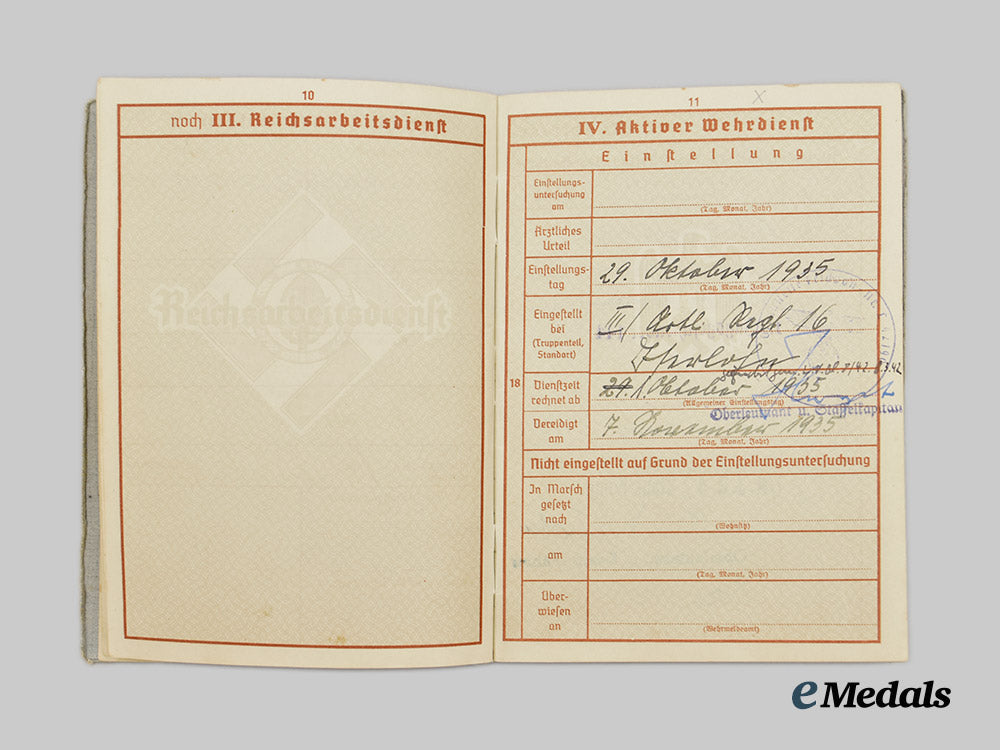 10
noch III. Reichsarbeitsdienst
Reichsarbeitsdienst
11 X
IV. Aktiver Wehrdienst
Einstellung
Einstellungs-
untersuchung
am
(Tag, Monat, Jahr)
Ärztliches
Urteil
Einstellungs-
tag
29. Oktober 1935
(Tag, Monat, Jahr)
Eingestellt
bei
(Truppenteil,
Standort)
III/ Artl. Regt. 16
Iserlohn
18
Dienstzeit
rechnet ab
29. 1. Oktober 1935
(Allgemeiner Einstellungstag)
Oberleutnant u. Staffelkapitän
Vereidigt
am
7. November 1935
(Tag, Monat, Jahr)
Nicht eingestellt auf Grund der Einstellungsuntersuchung
In Marsch
gesetzt
nach
(Wohnsitz)
am
(Tag, Monat, Jahr)
Über-
wiesen
an
(Wehrmeldeamt)
eMedals